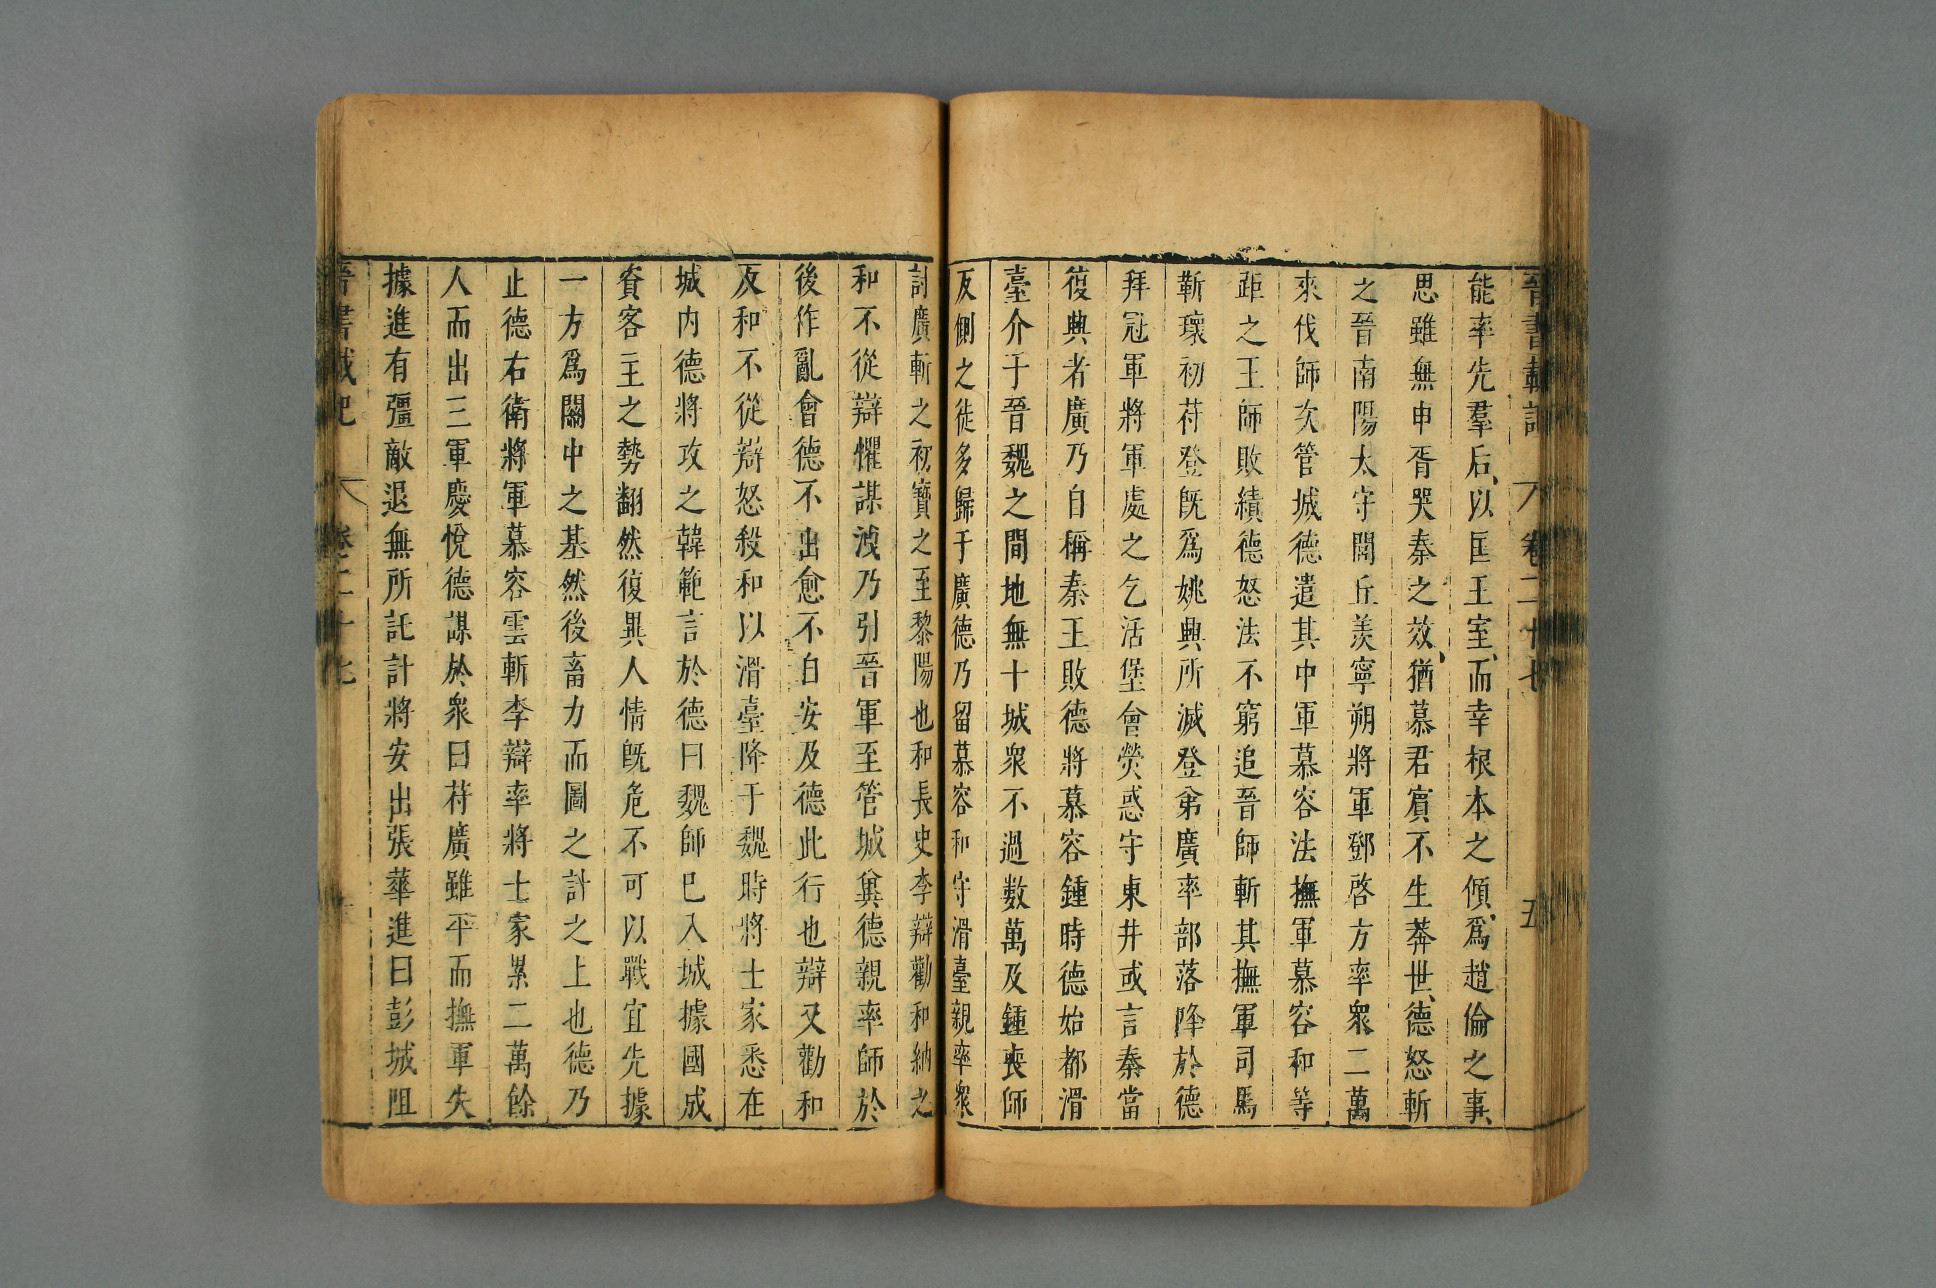 晉書載記 卷二十七 五
能率先羣后以匡王室而幸根本之傾爲趙倫之事
思雖無申胥哭秦之效猶慕君賓不生莽世德怒斬
之晉南陽太守閭丘羨寧朔將軍鄧啓方率衆二萬
來伐師次管城德遣其中軍慕容法撫軍慕容和等
距之王師敗績德怒法不窮追晉師斬其撫軍司馬
靳瓌初苻登旣爲姚興所滅登弟廣率部落降於德
拜冠軍將軍處之乞活堡會熒惑守東井或言秦當
復興者廣乃自稱秦王敗德將慕容鍾時德始都滑
臺介于晉魏之間地無十城衆不過數萬及鍾喪師
反側之徒多歸于廣德乃留慕容和守滑臺親率衆
討廣斬之初寶之至黎陽也和長史李辯勸和納之
和不從辯懼謀洩乃引晉軍至管城兾德親率師於
後作亂會德不出愈不自安及德此行也辯又勸和
反和不從辯怒殺和以滑臺降于魏時將士家悉在
城內德將攻之韓範言於德曰魏師已入城據國成
資客主之勢翻然復異人情旣危不可以戰宜先據
一方爲關中之基然後畜力而圖之計之上也德乃
止德右衛將軍慕容雲斬李辯率將士家累二萬餘
人而出三軍慶悅德謀於衆曰苻廣雖平而撫軍失
據進有彊敵退無所託計將安出張華進曰彭城阻
晉書載記 卷二十七